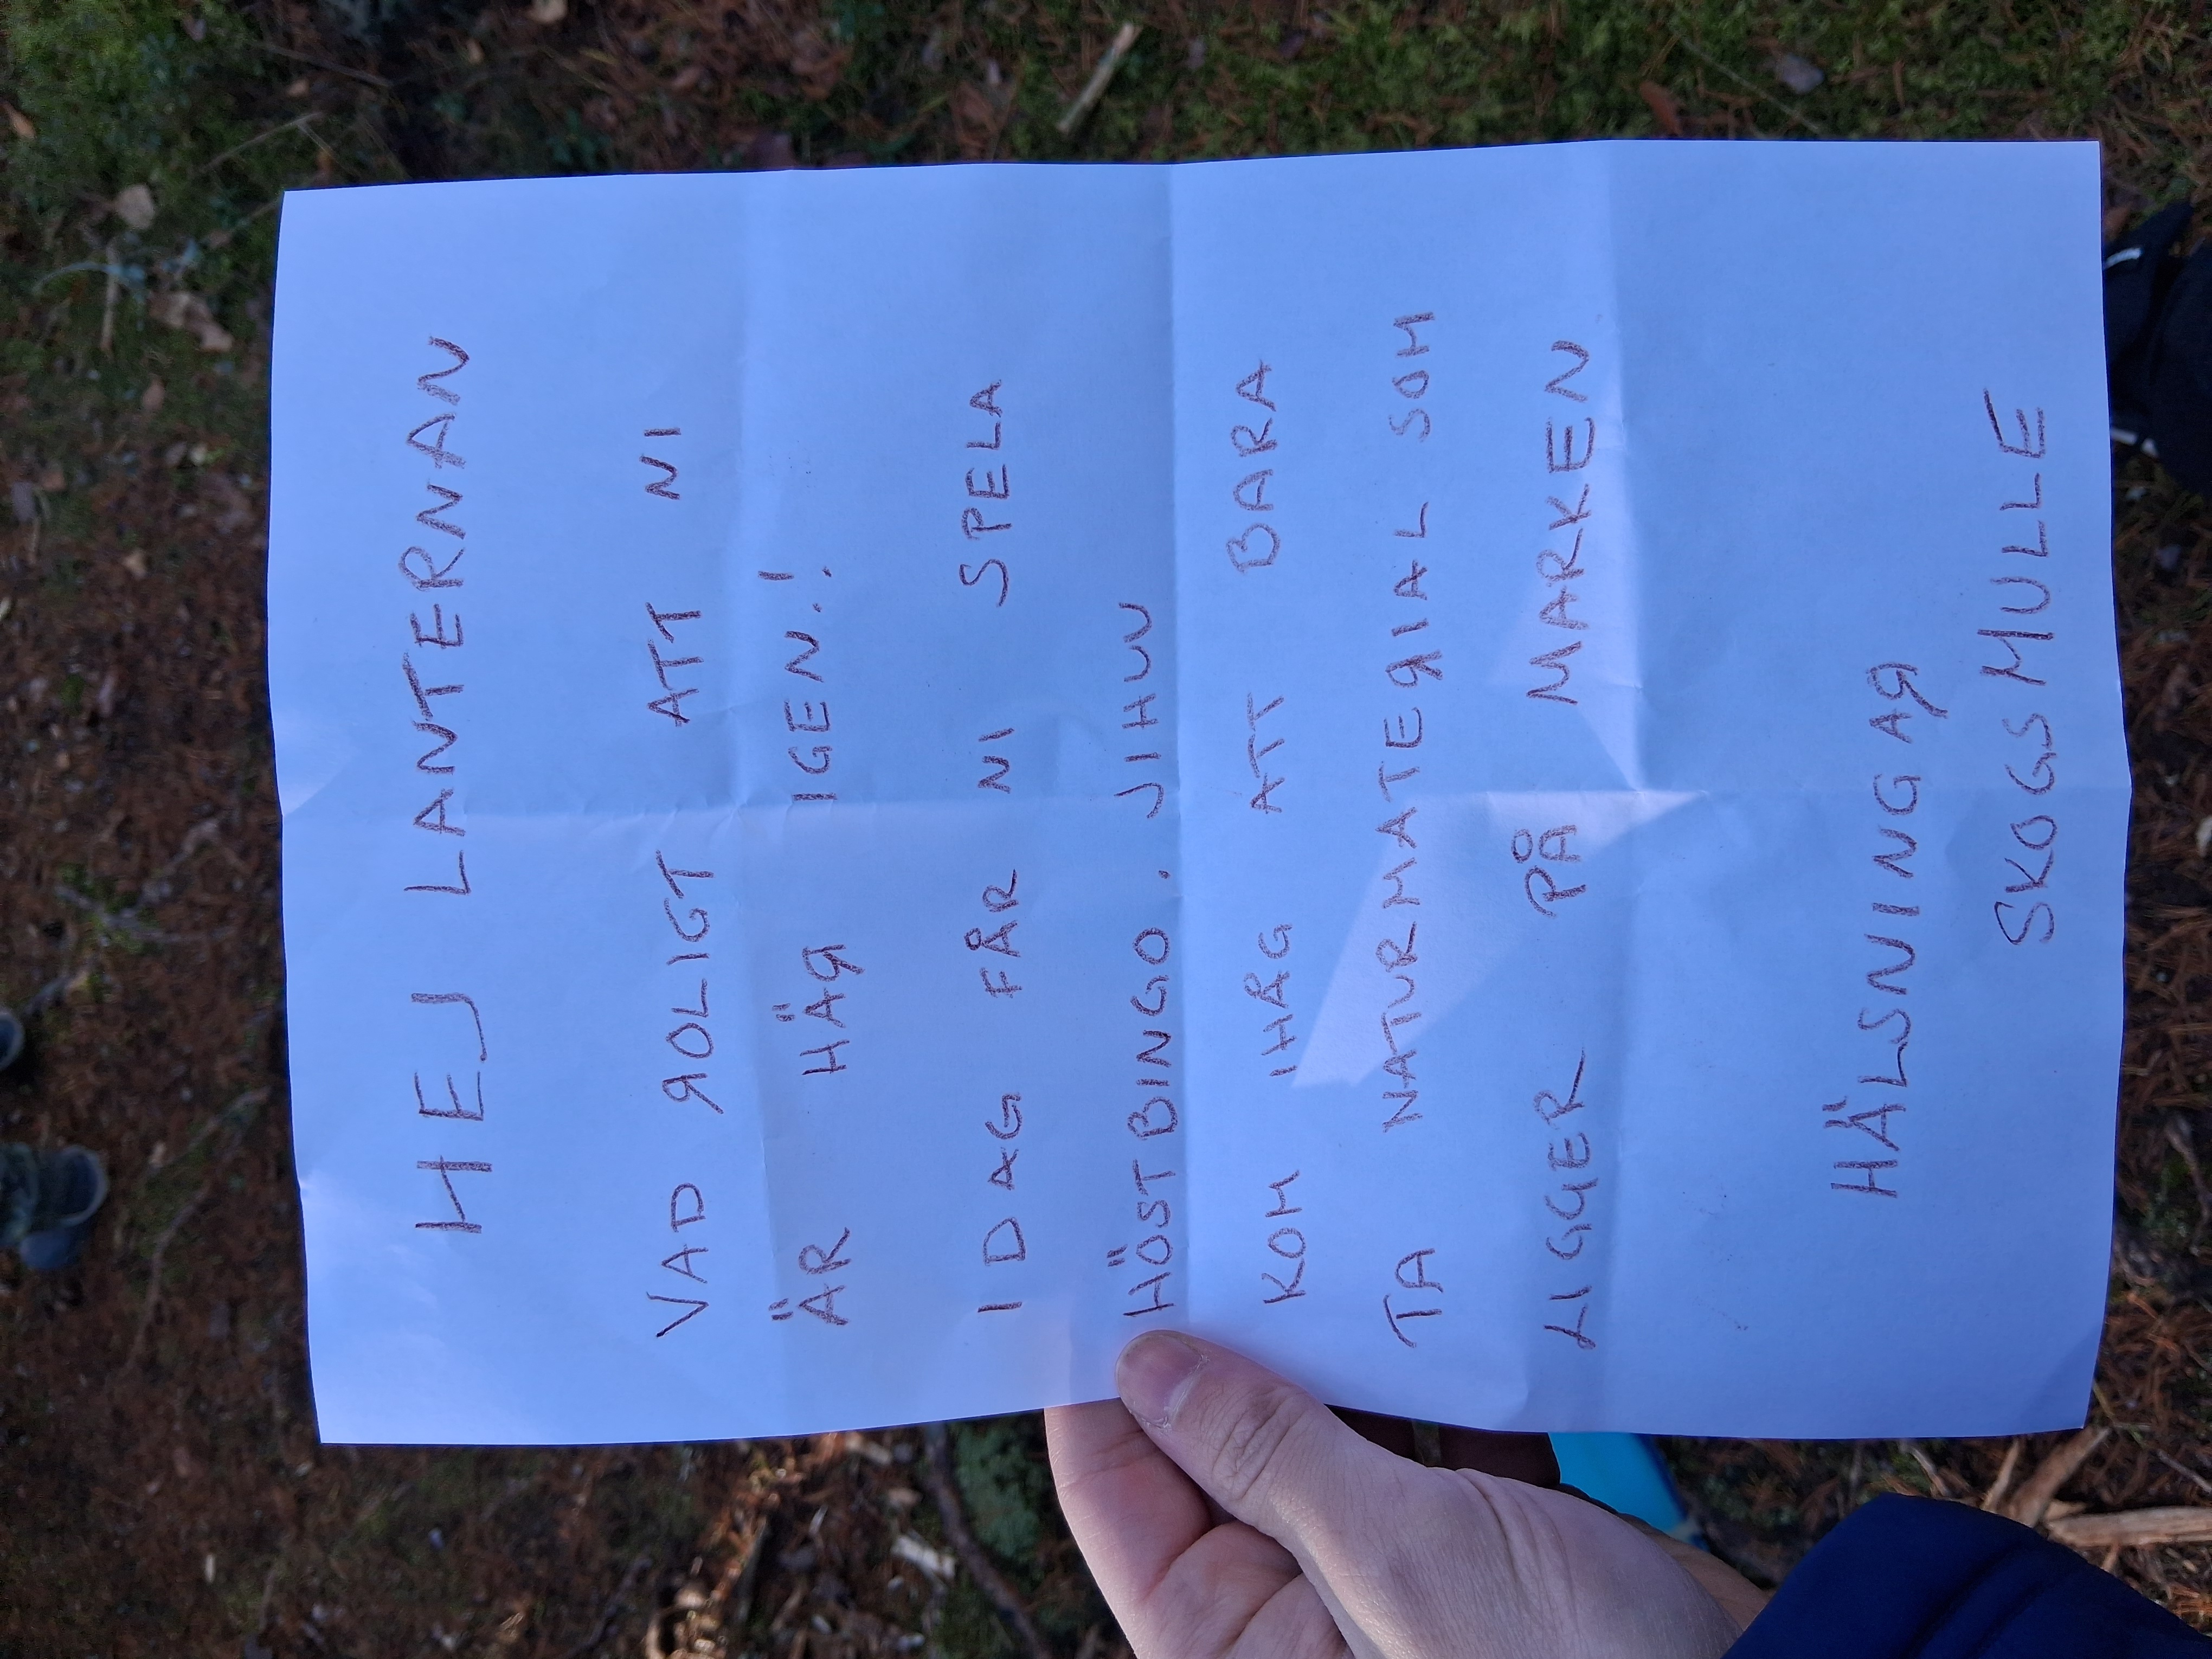 HEJ LANTERNAN
VAD ROLIGT ATT NI
ÄR HÄR IGEN.!
IDAG FÅR NI SPELA
HÖSTBINGO. JIHUU
KOM IHÅG ATT BARA
TA NATURMATERIAL SOM
LIGGER PÅ MARKEN
HÄLSNINGAR
SKOGSMULLE